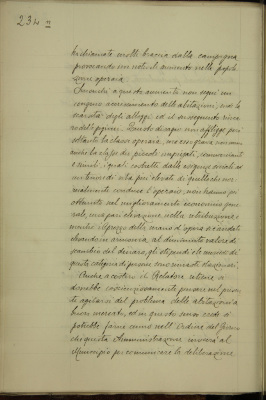 234 "
ha chiamato molte braccia dalla campagna
provocando un notevole aumento nella popola
zione operaia.
Senonchè a questo aumento non seguì un
congruo accrescimento delle abitazioni, onde la
scarsità degli alloggi ed il conseguente rincaro
delle pigioni. Questo disagio non affligge però
soltanto la classe operaia, ma eziandio
la classe dei piccoli impiegati, commercianti
e simili, i quali costretti dalle esigenze sociali ad
un tenore di vita più elevato di quello che nor
malmente conduce l'operaio, non hanno però
ottenuto nel miglioramento economico gene
rale, una pari elevazione nella retribuzione
mentre il prezzo della mano d'opera è andato
elevandosi in armonia al diminuito valore di
scambio del denaro, gli stipendi e le mercedi di
questa categoria di persone
Anche a costoro il Relatore ritiene si
dovrebbe coscienziosamente pensare nel presen
te agitarsi del problema delle abitazioni a
buon mercato, ed in questo senso crede si
potrebbe far un cenno nell'Ordine del Giorno
che questa Amministrazione invierà al
Municipio per comunicare la deliberazione